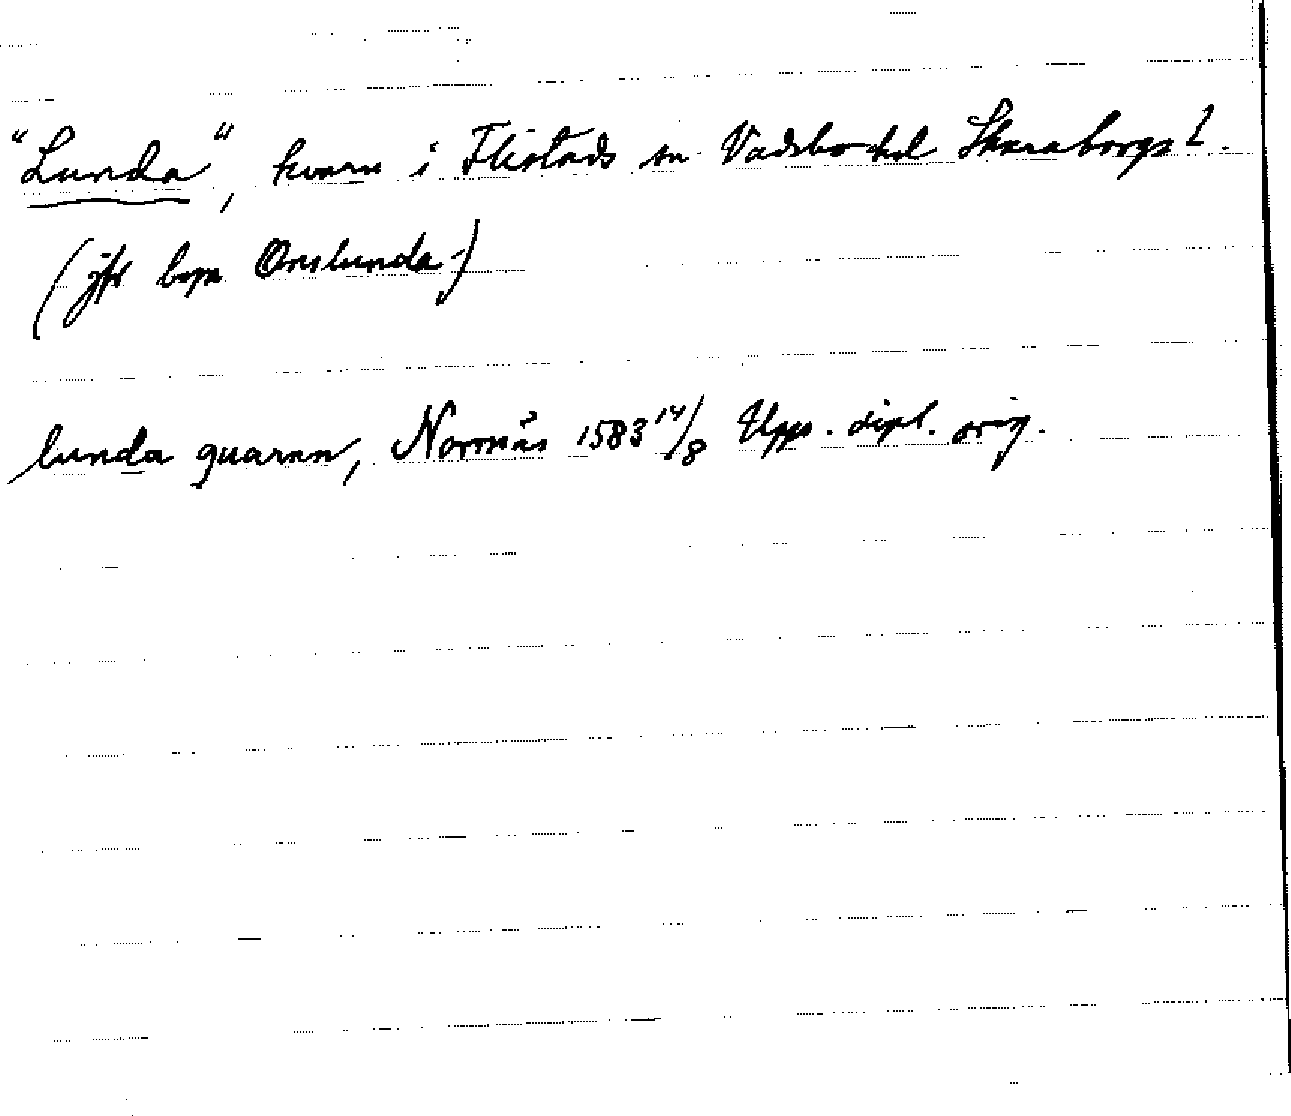 "Lunda", kvarn i Flistads sn Vadsbo hd Skaraborgs l.
(jfr byn Onslunda)
lunda quarnn, Normäs 1583 14/8 Upps. dipl. orig.